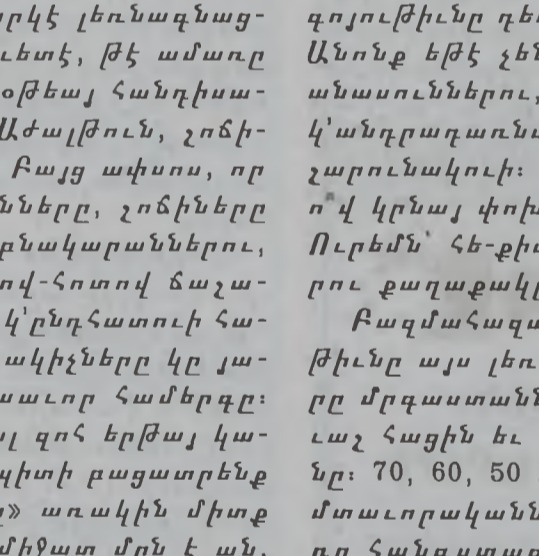 րկէ լեռնագնաց-
ւետէ, թէ ամառը
օթեայ հանդիսա-
Աժալթուն, շոճի-
Բայց ափսոս, որ
նները, շոճիները
բնակարաններու,
ով-հոտով ճաշա-
կ'ընդհատուի հա-
ակիչները կը յա-
սաւոր համերգը։
լ զոհ երթայ կա-
պիտի բացատրենք
» առակին միտք
միջատ մըն է ան.
գոյութիւնը դե
Անոնք եթէ չեն
անասուններու,
կ'անդրադառնա
շարունակուի։
ո՞վ կրնայ փոխ
Ուրեմն՝ հե-քիա
րու քաղաքակը
Բազմահազա
թիւնը այս լեռ
րը մրգաստանն
ւաշ հացին եւ
նը։ 70, 60, 50
մտաւորականն